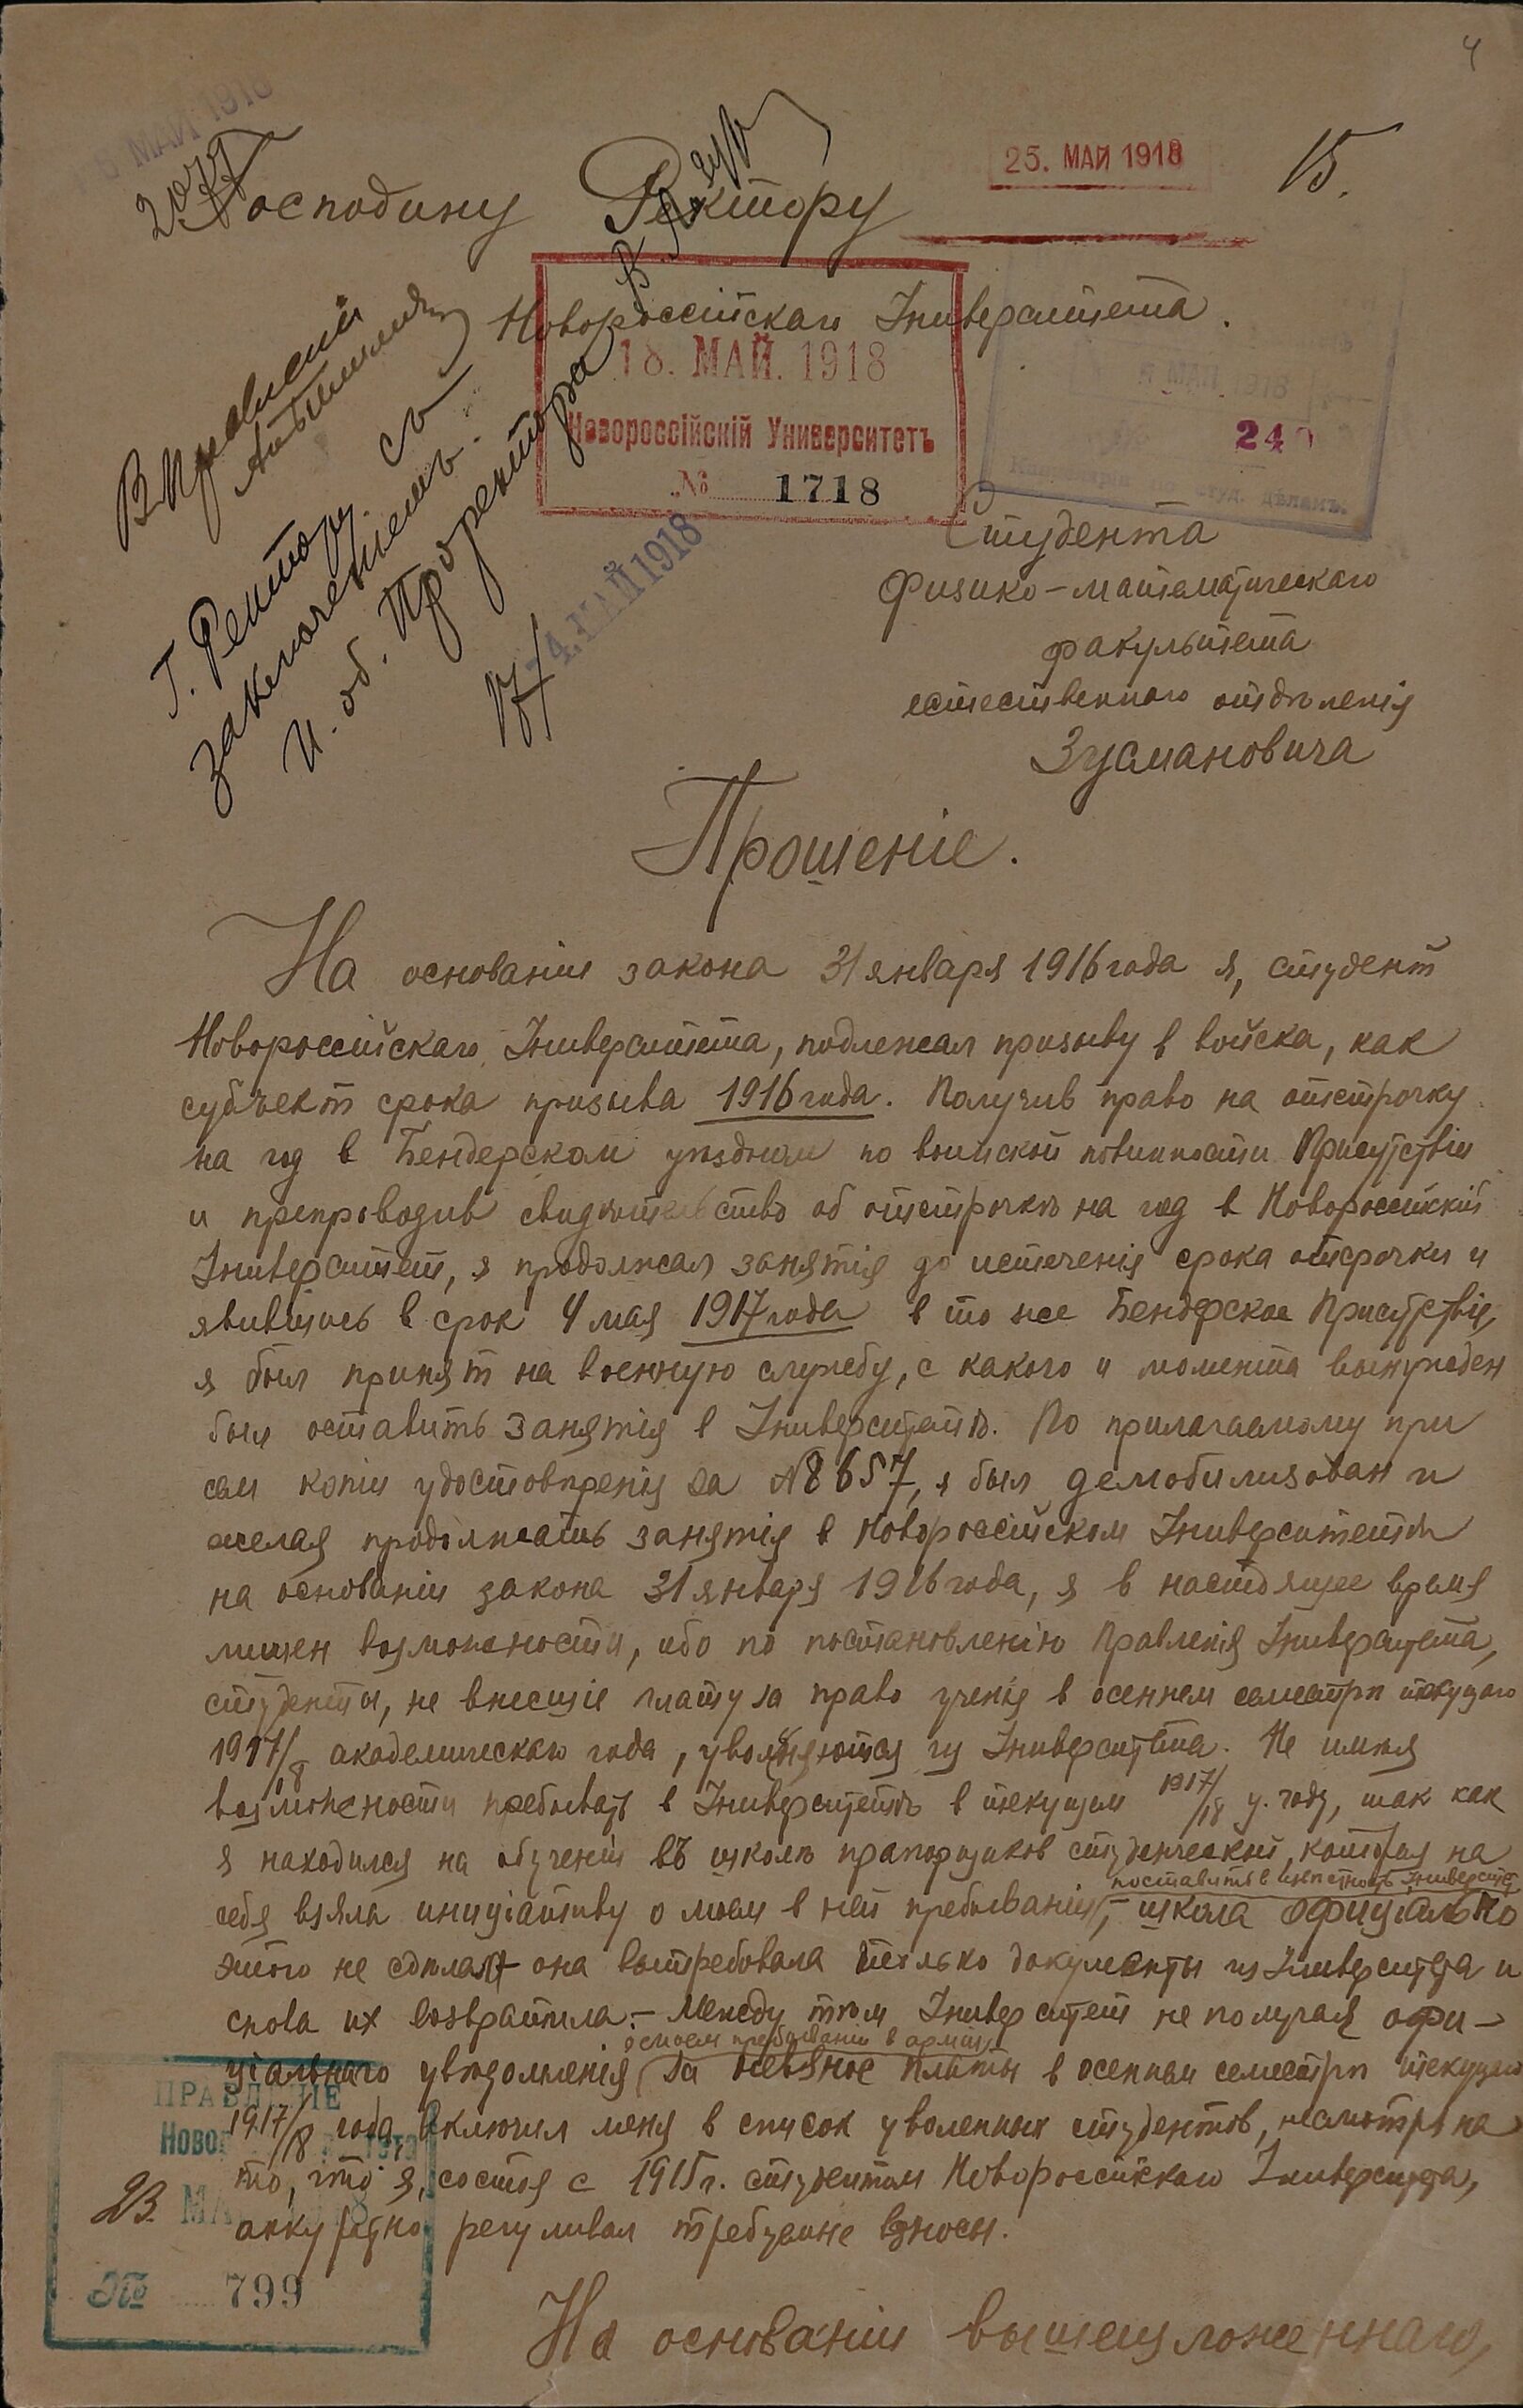 4
25. МАЙ 1918
15.
Господину Ректору
Новороссійскаго Университета.
18. МАЙ. 1918
Новороссійскій Университетъ
№ 1718
240
студ. дѣламъ.
В Правленiи
Г. Ректору съ
заключеніемъ.
И. об. Проректора
4. МАЙ 1918
Студента
Физико-математическаго
факультета
естественнаго отдѣленія
Зусмановича
Прошеніе.
На основаніи закона 31 января 1916 года я, студент
Новороссійскаго Университета, подлежал призыву в войска, как
субъект срока призыва 1916 года. Получив право на отстрочку
на год в Бендерском уѣздном по воинской повинности Присутствіи
и препроводив свидѣтельство об отстрочкѣ на год в Новороссійскій
Университет, я продолжал занятія до истеченія срока отсрочки и
явившись в срок 4 мая 1917 года в то же Бендерское Присутствіе,
я был принят на военную службу, с какого и момента вынужден
был оставить занятія в Университетѣ. По прилагаемому при
сем копіи удостовѣренія за №8657, я был демобилизован и
желая продолжать занятія в Новороссійском Университетѣ
на основаніи закона 31 января 1916 года, я в настоящее время
лишен возможности, ибо по постановленію Правленія Университета,
студенты, не внесшіе плату за право ученія в осеннем семестрѣ текущаго
1917/8 академическаго года, увольняются из Университета. Не имѣя
возможности пребывать в Университетѣ в текущем 1917/18 у. году, так как
я находился на обученіи въ школѣ прапорщиков студенческой, которая на
себя взяла иниціативу о моем в ней пребываніи поставить в извѣстность Университет, - школа официально
этого не сдѣлала - она вытребовала только документы из Университета и
снова их возвратила. - Между тѣм Университет не получая офи-
ціальнаго увѣдомленія о моем пребываніи в арміи, за невзнос платы в осеннем семестрѣ текущаго
1917/8 года включил меня в список уволенных студентов, несмотря на
то, что я, состоя с 1915 г. студентом Новороссійскаго Университета,
аккуратно регулировал требуемые взносы.
ПРАВЛЕНІЕ
23.
№ 799
На основаніи вышеизложеннаго,